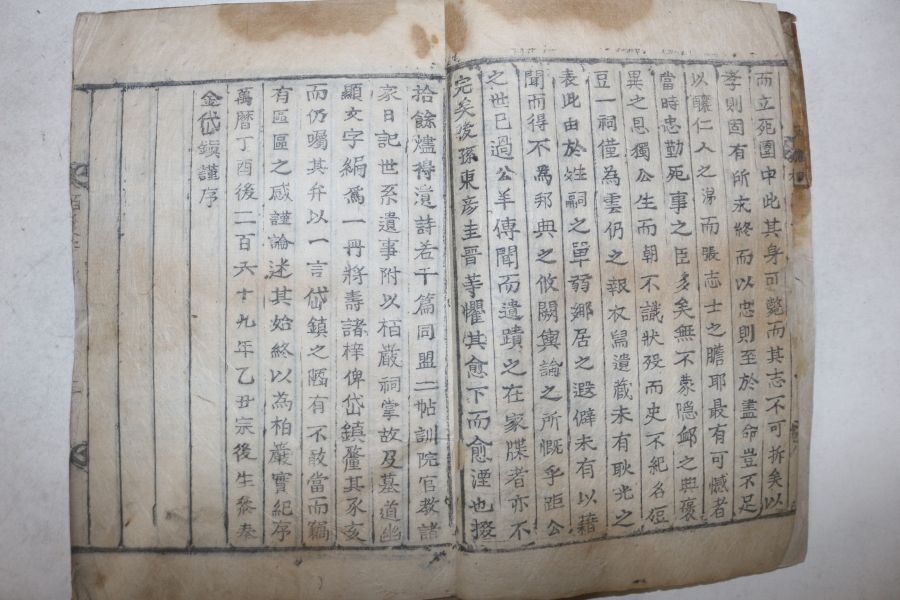 而立死圍中此其身可斃而其志不可折矣以
孝則固有所求終而以忠則至於盡命豈不足
以釀仁人之涕而張志士之膽耶最有可憾者
當時忠勤死事之臣多矣無不蒙隱卹之典褒
異之恩獨公生而朝不識狀歿而史不紀名短
豆一祠僅為雲仍之報杈舄遺藏未有耿光之
表此由於姓嗣之單弱鄉居之遐僻未有以藉
聞而得不為邦典之攸闕輿論之所慨乎距公
之世已過公羊傳聞而遺蹟之在家牒者亦不
完矣後孫東彦圭晋等懼其愈下而愈湮也掇
拾餘燼得遺詩若干篇同盟二帖訓院官教諸
家日記世系遺事附以栢巖祠掌故及墓道幽
顯文字編爲一冊將壽諸梓俾岱鎮釐其豕亥
而仍囑其弁以一言岱鎮之陋有不敢當而竊
有區區之感謹論述其始終以為栢巖實紀序
萬曆丁酉後二百六十九年乙丑宗後生
金岱鎮謹序